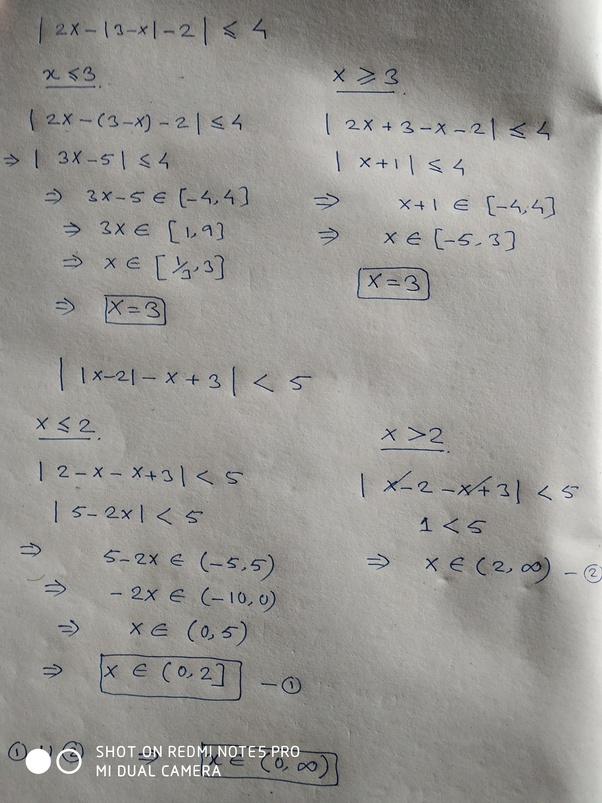 | 2x-|3-x|-2| ≤ 4
x ≤ 3.
| 2x-(3-x)-2| ≤ 4
⇒ | 3x-5| ≤ 4
⇒ 3x-5 ∈ [-4,4]
⇒ 3x ∈ [1,9]
⇒ x ∈ [1/3,3]
⇒ x=3
x ≥ 3.
| 2x+3-x-2| ≤ 4
| x+1| ≤ 4
⇒ x+1 ∈ [-4,4]
⇒ x ∈ [-5,3]
x=3
| |x-2|-x+3| < 5
x ≤ 2.
| 2-x-x+3| < 5
| 5-2x| < 5
⇒ 5-2x ∈ (-5,5)
⇒ -2x ∈ (-10,0)
⇒ x ∈ (0,5)
⇒ x ∈ (0,2] -①
x > 2.
| x-2-x+3| < 5
1 < 5
⇒ x ∈ (2,∞) -②
① ② ⇒ x ∈ (0,∞)
SHOT ON REDMI NOTE 5 PRO
MI DUAL CAMERA